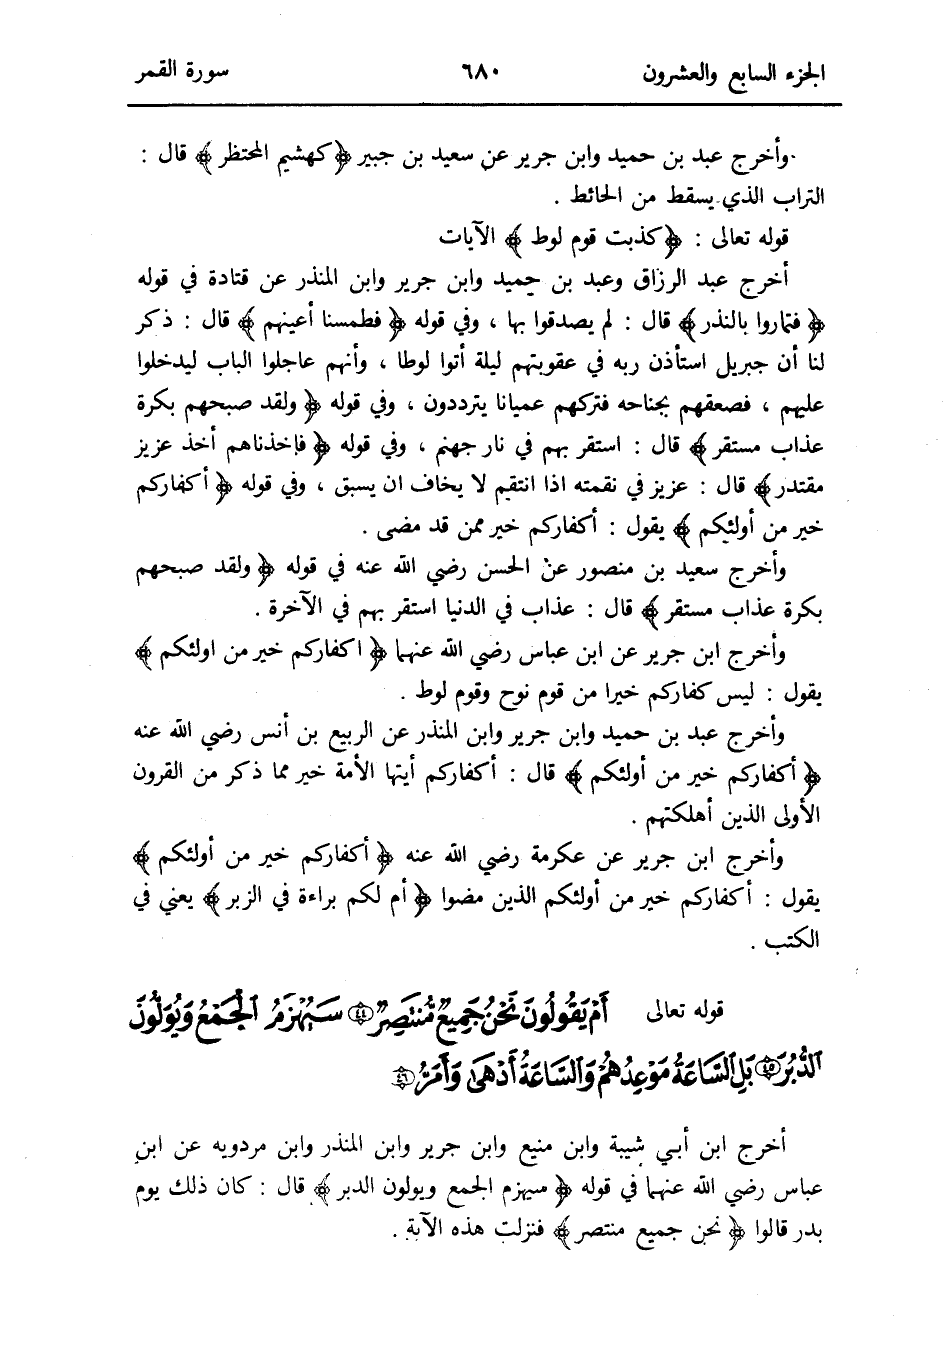 الجزء السابع والعشرون ٦٨٠ سورة القمر
وأخرج عبد بن حميد وابن جرير عن سعيد بن جبير ﴿ كهشيم المحتظر ﴾ قال :
التراب الذي يسقط من الحائط .
قوله تعالى : ﴿ كذبت قوم لوط ﴾ الآيات
أخرج عبد الرزاق وعبد بن حميد وابن جرير وابن المنذر عن قتادة في قوله
﴿ فتماروا بالنذر ﴾ قال : لم يصدقوا بها ، وفي قوله ﴿ فطمسنا أعينهم ﴾ قال : ذكر
لنا أن جبريل استأذن ربه في عقوبتهم ليلة أتوا لوطا ، وأنهم عاجلوا الباب ليدخلوا
عليهم ، فصعقهم بجناحه فتركهم عميانا يترددون ، وفي قوله ﴿ ولقد صبحهم بكرة
عذاب مستقر ﴾ قال : استقر بهم في نار جهنم ، وفي قوله ﴿ فاخذناهم أخذ عزيز
مقتدر ﴾ قال : عزيز في نقمته اذا انتقم لا يخاف ان يسبق ، وفي قوله ﴿ أكفاركم
خير من أولئكم ﴾ يقول : أكفاركم خير ممن قد مضى .
وأخرج سعيد بن منصور عن الحسن رضي الله عنه في قوله ﴿ ولقد صبحهم
بكرة عذاب مستقر ﴾ قال : عذاب في الدنيا استقر بهم في الآخرة .
وأخرج ابن جرير عن ابن عباس رضي الله عنهما ﴿ اكفاركم خير من اولئكم ﴾
يقول : ليس كفاركم خيرا من قوم نوح وقوم لوط .
وأخرج عبد بن حميد وابن جرير وابن المنذر عن الربيع بن أنس رضي الله عنه
﴿ أكفاركم خير من أولئكم ﴾ قال : أكفاركم أيتها الأمة خير مما ذكر من القرون
الأولى الذين أهلكتهم .
وأخرج ابن جرير عن عكرمة رضي الله عنه ﴿ أكفاركم خير من أولئكم ﴾
يقول : أكفاركم خير من أولئكم الذين مضوا ﴿ أم لكم براءة في الزبر ﴾ يعني في
الكتب .
قوله تعالى أَمْ يَقُولُونَ نَحْنُ جَمِيعٌ مُّنتَصِرٌ ٤٤ سَيُهْزَمُ الْجَمْعُ وَيُوَلُّونَ
الدُّبُرَ ٤٥ بَلِ السَّاعَةُ مَوْعِدُهُمْ وَالسَّاعَةُ أَدْهَىٰ وَأَمَرُّ ٤٦
أخرج ابن أبي شيبة وابن منيع وابن جرير وابن المنذر وابن مردويه عن ابن
عباس رضي الله عنهما في قوله ﴿ سيهزم الجمع ويولون الدبر ﴾ قال : كان ذلك يوم
بدر قالوا ﴿ نحن جميع منتصر ﴾ فنزلت هذه الآية .